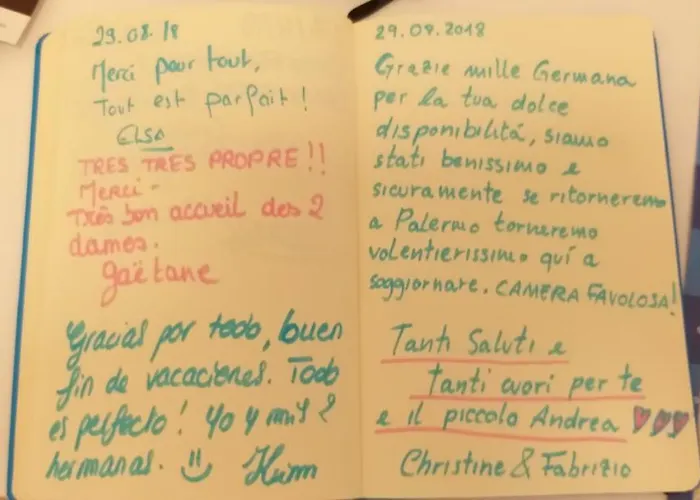 29.08.18
Merci pour tout,
Tout est parfait !
ELSA
TRES TRES PROPRE !!
Merci -
Très bon accueil des 2
dames.
Gaëtane
Gracias por todo, buen
fin de vacaciones. Todo
es perfecto ! Yo y mis 2
hermanas.
29.08.2018
Grazie mille Germana
per la tua dolce
disponibilitá, siamo
stati benissimo e
sicuramente se ritorneremo
a Palermo torneremo
volentierissimo quí a
soggiornare. CAMERA FAVOLOSA!
Tanti Saluti e
tanti cuori per te
e il piccolo Andrea
Christine & Fabrizio